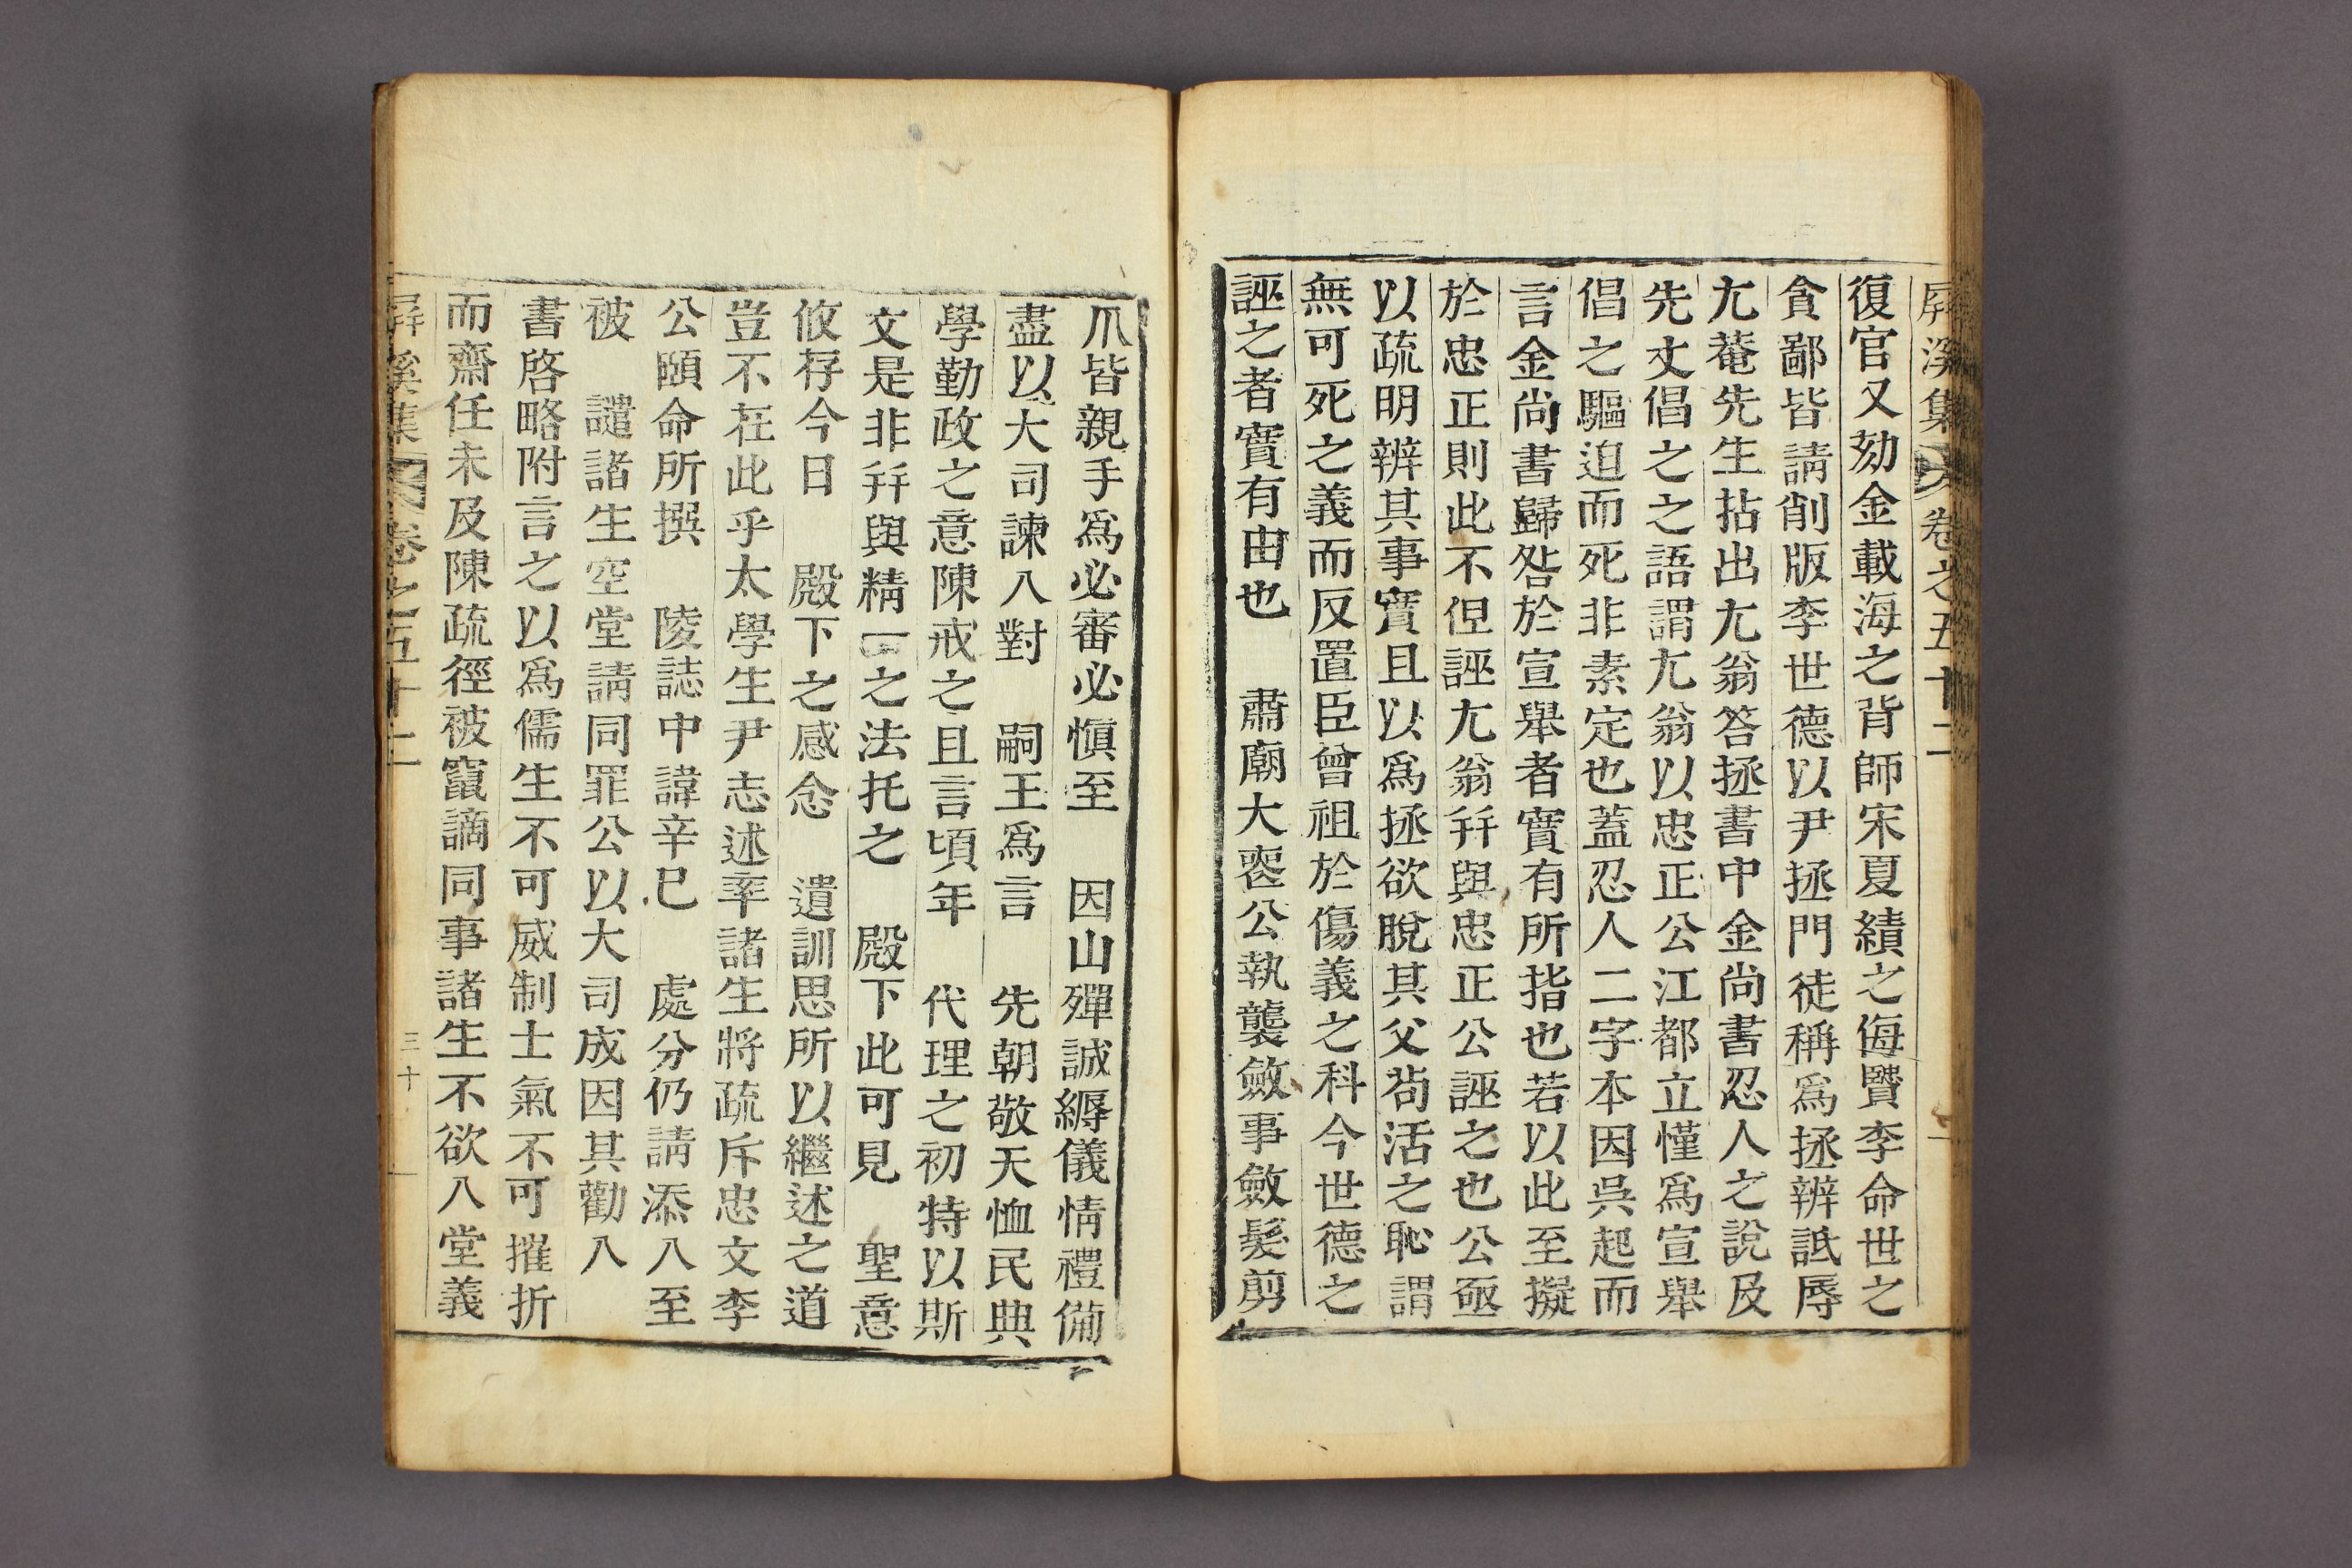 屛溪集 卷之五十二
復官又劾金載海之背師宋夏績之侮賢李命世之
貪鄙皆請削版李世德以尹拯門徒稱爲拯辨詆辱
尤菴先生拈出尤翁答拯書中金尙書忍人之說及
先丈倡之之語謂尤翁以忠正公江都立慬爲宣擧
倡之驅迫而死非素定也蓋忍人二字本因吳起而
言金尙書歸咎於宣擧者實有所指也若以此至擬
於忠正則此不但誣尤翁幷與忠正公誣之也公亟
以疏明辨其事實且以爲拯欲脫其父苟活之恥謂
無可死之義而反置臣曾祖於傷義之科今世德之
誣之者實有由也 肅廟大喪公執襲斂事斂髮剪
爪皆親手爲必審必愼至 因山殫誠縟儀情禮備
盡以大司諫入對 嗣王爲言 先朝敬天恤民典
學勤政之意陳戒之且言頃年 代理之初特以斯
文是非幷與精一之法托之 殿下此可見 聖意
攸存今日 殿下之感念 遺訓思所以繼述之道
豈不在此乎太學生尹志述率諸生將疏斥忠文李
公頤命所撰 陵誌中諱辛巳 處分仍請添入至
被 譴諸生空堂請同罪公以大司成因其勸入
書啓略附言之以爲儒生不可威制士氣不可摧折
而齋任未及陳疏徑被竄謫同事諸生不欲入堂義
屛溪集 卷之五十二 三十